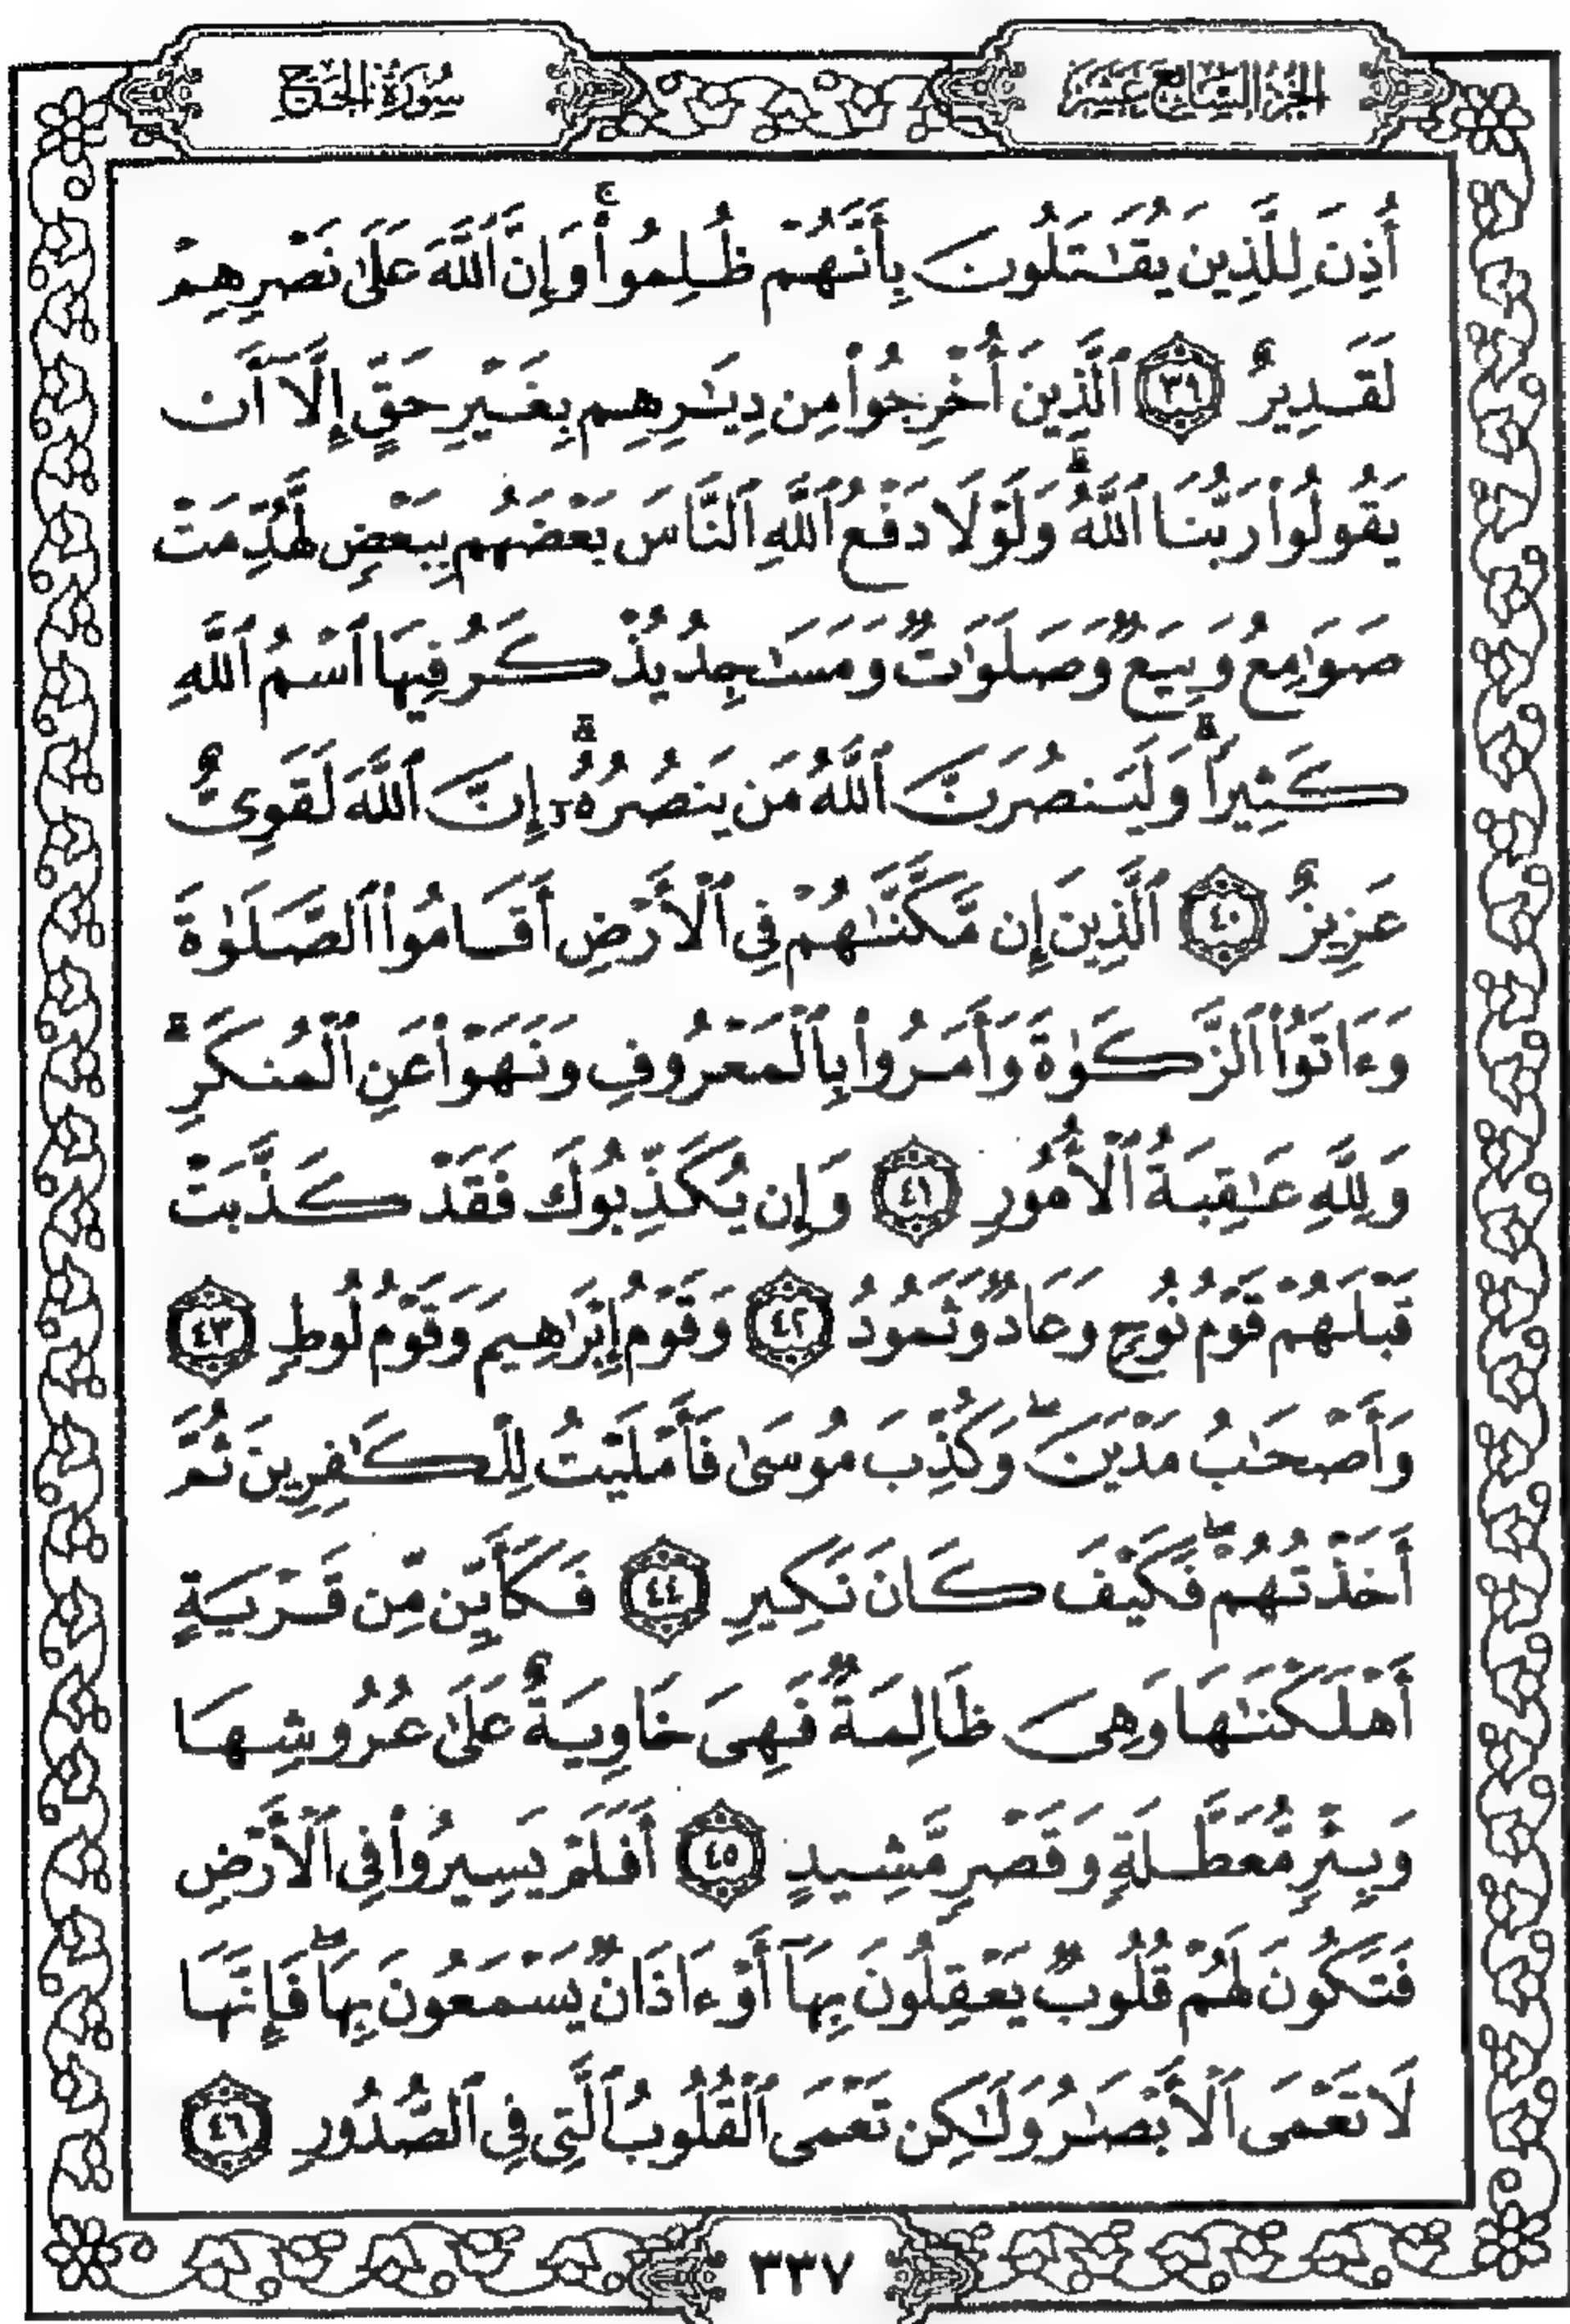 الجزء السابع عشر
سورة الحج
أُذِنَ لِلَّذِينَ يُقَـٰتَلُونَ بِأَنَّهُمْ ظُلِمُوا۟ ۚ وَإِنَّ ٱللَّهَ عَلَىٰ نَصْرِهِمْ
لَقَدِيرٌ ٣٩ ٱلَّذِينَ أُخْرِجُوا۟ مِن دِيَـٰرِهِم بِغَيْرِ حَقٍّ إِلَّآ أَن
يَقُولُوا۟ رَبُّنَا ٱللَّهُ ۗ وَلَوْلَا دَفْعُ ٱللَّهِ ٱلنَّاسَ بَعْضَهُم بِبَعْضٍ لَّهُدِّمَتْ
صَوَٰمِعُ وَبِيَعٌ وَصَلَوَٰتٌ وَمَسَـٰجِدُ يُذْكَرُ فِيهَا ٱسْمُ ٱللَّهِ
كَثِيرًا ۗ وَلَيَنصُرَنَّ ٱللَّهُ مَن يَنصُرُهُۥٓ ۗ إِنَّ ٱللَّهَ لَقَوِىٌّ
عَزِيزٌ ٤٠ ٱلَّذِينَ إِن مَّكَّنَّـٰهُمْ فِى ٱلْأَرْضِ أَقَامُوا۟ ٱلصَّلَوٰةَ
وَءَاتَوُا۟ ٱلزَّكَوٰةَ وَأَمَرُوا۟ بِٱلْمَعْرُوفِ وَنَهَوْا۟ عَنِ ٱلْمُنكَرِ ۗ
وَلِلَّهِ عَـٰقِبَةُ ٱلْأُمُورِ ٤١ وَإِن يُكَذِّبُوكَ فَقَدْ كَذَّبَتْ
قَبْلَهُمْ قَوْمُ نُوحٍ وَعَادٌ وَثَمُودُ ٤٢ وَقَوْمُ إِبْرَٰهِيمَ وَقَوْمُ لُوطٍ ٤٣
وَأَصْحَـٰبُ مَدْيَنَ ۖ وَكُذِّبَ مُوسَىٰ فَأَمْلَيْتُ لِلْكَـٰفِرِينَ ثُمَّ
أَخَذْتُهُمْ ۖ فَكَيْفَ كَانَ نَكِيرِ ٤٤ فَكَأَيِّن مِّن قَرْيَةٍ
أَهْلَكْنَـٰهَا وَهِىَ ظَالِمَةٌ فَهِىَ خَاوِيَةٌ عَلَىٰ عُرُوشِهَا
وَبِئْرٍ مُّعَطَّلَةٍ وَقَصْرٍ مَّشِيدٍ ٤٥ أَفَلَمْ يَسِيرُوا۟ فِى ٱلْأَرْضِ
فَتَكُونَ لَهُمْ قُلُوبٌ يَعْقِلُونَ بِهَآ أَوْ ءَاذَانٌ يَسْمَعُونَ بِهَا ۖ فَإِنَّهَا
لَا تَعْمَى ٱلْأَبْصَـٰرُ وَلَـٰكِن تَعْمَى ٱلْقُلُوبُ ٱلَّتِى فِى ٱلصُّدُورِ ٤٦
٣٣٧